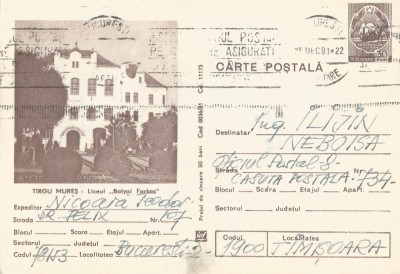 BUCUREȘTI
UL POSTAL
ASIGURATI
DEC 81-22
CARTE POȘTALĂ
TÎRGU MUREȘ : Liceul „Bolyai Farkas"
Expeditor Nicoara Teodor
Strada DR. FELIX Nr. 107
Blocul Scara Etajul Apart.
Sectorul Județul
Codul 78153 Localitatea București-2-
Cod 0036/81 C. 11175
Prețul de vînzare 50 bani
Destinatar Ing. ILIJIN
NEBOISA
Oficiul Postal-8-
Strada CASUTA POSTALA Nr. 734-
Blocul Scara Etajul Apart.
Sectorul Județul
Codul Localitatea
1900 TIMIȘOARA